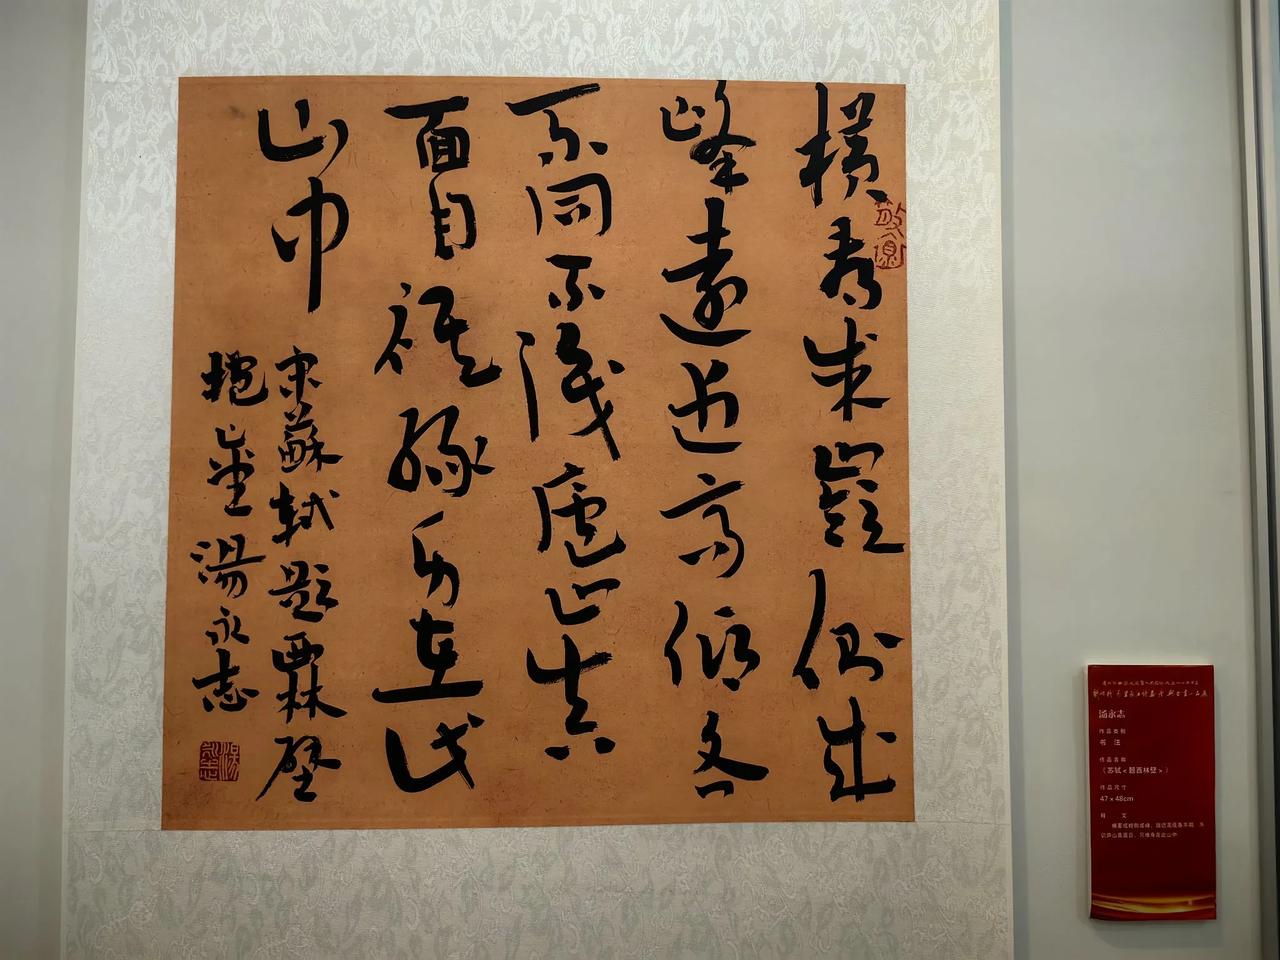 横看成嶺側成
峰遠近高低各
不同不識廬山真
面目祗緣身在此
山中
宋蘇軾題西林壁
抱崖湯永志
汤永志
作品类别
书 法
作品名称
《苏轼<题西林壁>》
作品尺寸
47×48cm
释 文
横看成岭侧成峰，远近高低各不同。不
识庐山真面目，只缘身在此山中